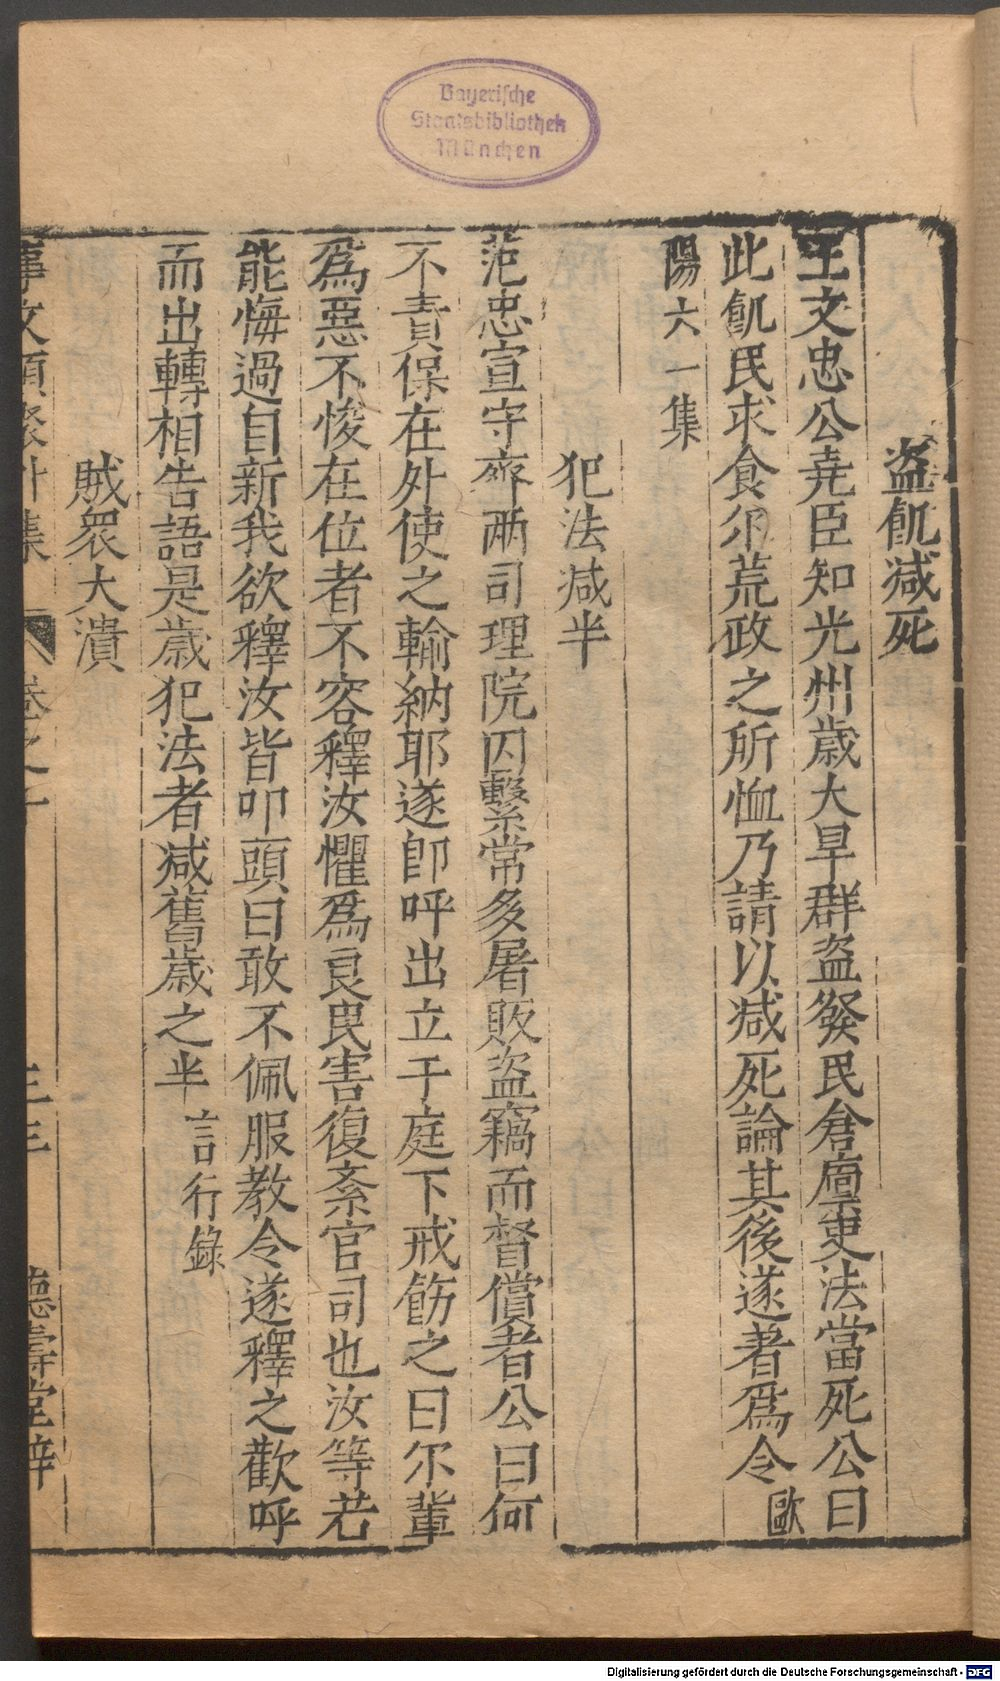 Bayerische
Staatsbibliothek
München
盜飢減死
王文忠公尭臣知光州歲大旱群盜發民倉廩吏法當死公曰
此飢民求食尒荒政之所恤乃請以减死論其後遂著爲令歐
陽六一集
犯法减半
范忠宣守齊兩司理院囚繫常多屠敗盜竊而督償者公曰何
不責保在外使之輸納耶遂即呼出立于庭下戒飭之曰尒輩
爲惡不悛在位者不容釋汝懼爲良民害復紊官司也汝等若
能悔過自新我欲釋汝皆叩頭曰敢不佩服教令遂釋之歡呼
而出轉相告語是歲犯法者减舊歲之半言行錄
賊衆大潰
事文類聚外集 卷之十 德壽堂梓
Digitalisierung gefördert durch die Deutsche Forschungsgemeinschaft - DFG